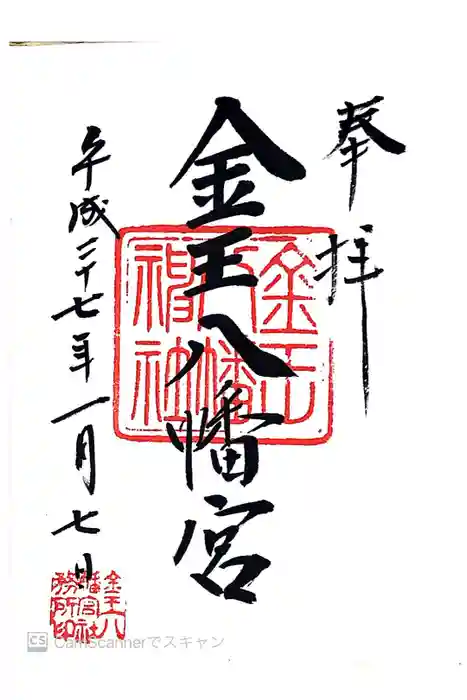 奉拝
金王八幡宮
平成二十七年一月七日
金王八幡神社
金王八幡宮社務所印
CS CamScannerでスキャン